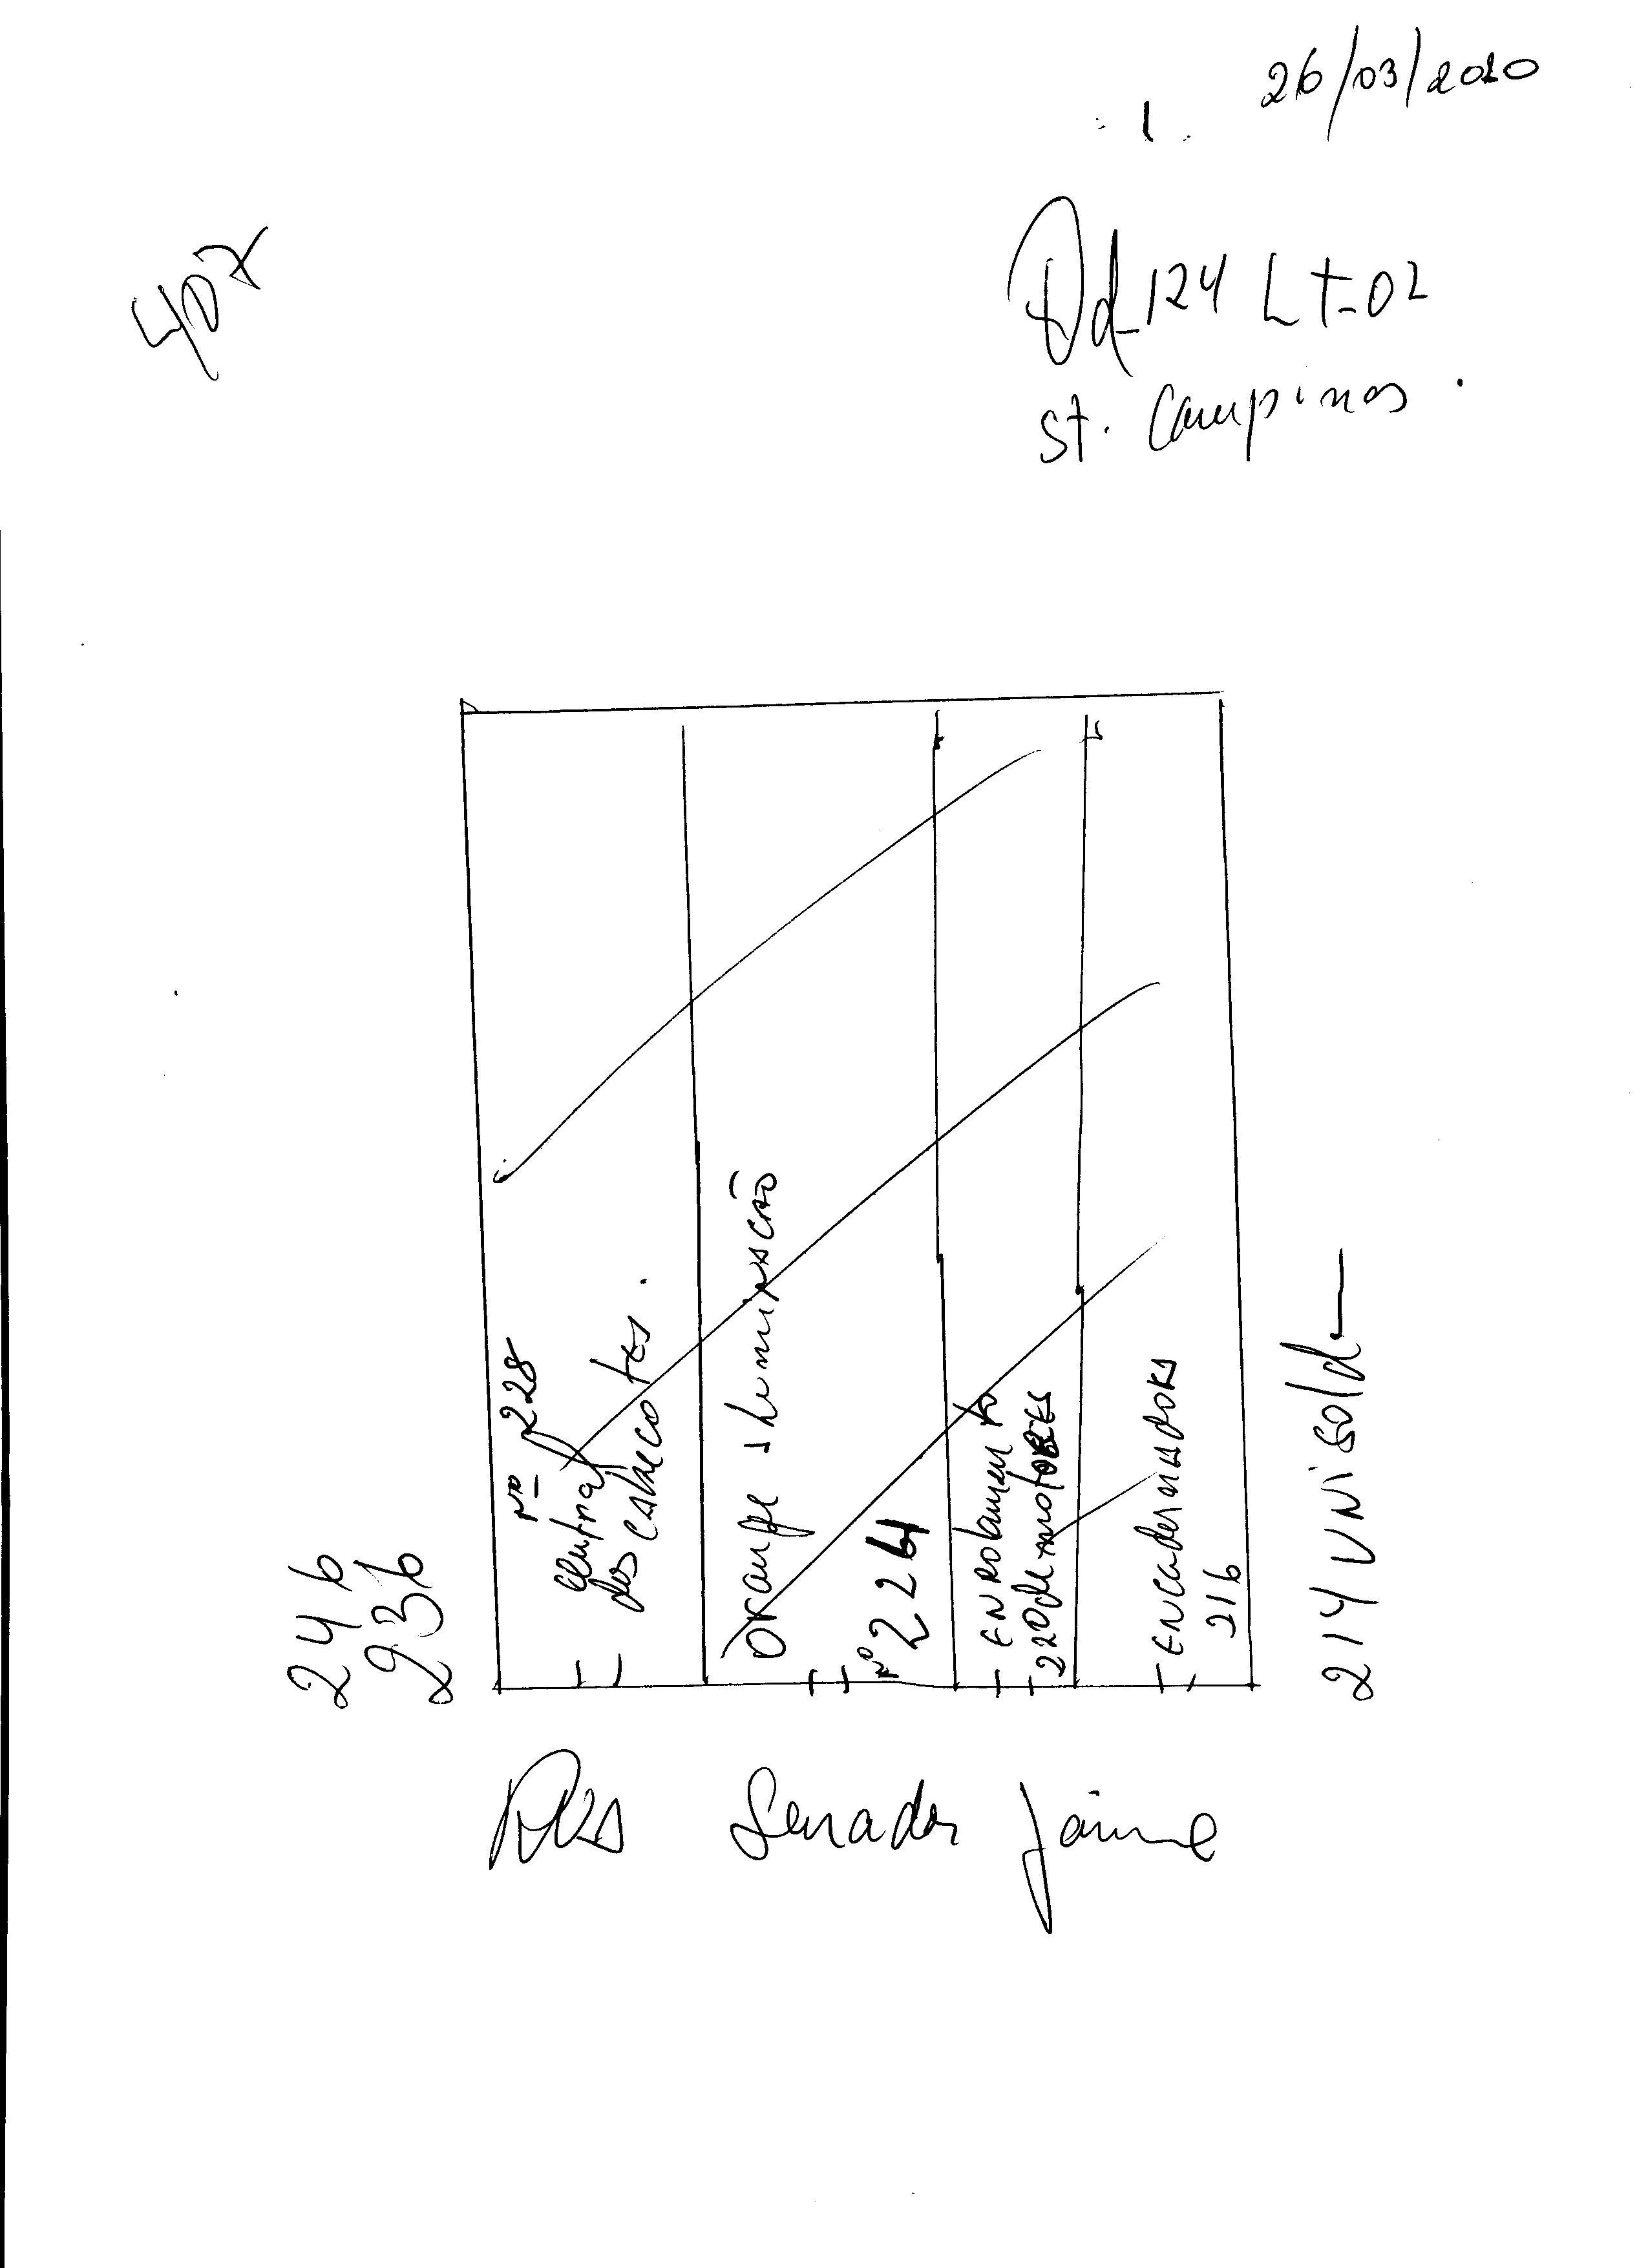 26/03/2010
407
Qd-124 Lt-02
St. Campinas.
246
236
Nº 228
Central
dos Cabeçotes.
Orange Iluminação
Nº 224
ENROlamento
220 de motores
ENcadernadora
216
214 UNisolda
RUA Senador Jaime